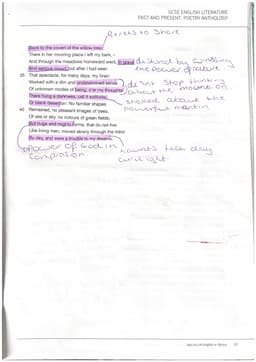 GCSE ENGLISH LITERATURE
PAST AND PRESENT: POETRY ANTHOLOGY
Back to the covert of the willow tree;
There in her mooring-place I left my bark, –
And through the meadows homeward went, in grave
And serious mood; but after I had seen
35 That spectacle, for many days, my brain
Worked with a dim and undetermined sense
Of unknown modes of being; o'er my thoughts
There hung a darkness, call it solitude
Or blank desertion. No familiar shapes
40 Remained, no pleasant images of trees,
Of sea or sky, no colours of green fields;
But huge and mighty forms, that do not live
Like living men, moved slowly through the mind
By day, and were a trouble to my dreams.
to shore
by
the power of nature
didn't stop thinking
about the
about the
powerful
power of God in
haunts them day
and night